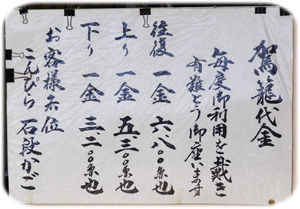 駕籠代金
毎度御利用を戴き
有難とう御座います
往復 一金 六.八〇〇円也
上り 一金 五.三〇〇円也
下り 一金 三.二〇〇円也
お客様各位
こんぴら 石段かご